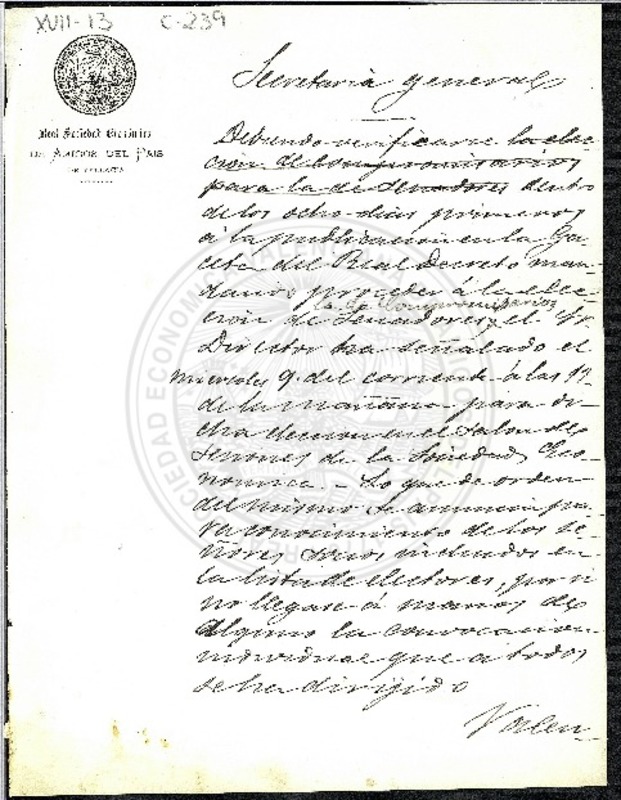 XVII-13 C-239
Real Sociedad Económica
DE AMIGOS DEL PAIS
DE VALENCIA
Secretaria general
Debiendo verificarse la elec-
ción de compromisarios
para la de Senadores dentro
de los ocho dias primeros
á la publicacion en la Ga-
ceta del Real Decreto man-
dando proceder á la elec-
la de Compromisarios
ción de Senadores, el Sr.
Director ha señalado el
miercoles 9 del corriente á las 11
de la mañana para di-
cha eleccion en el Salon de
sesiones de la Sociedad Eco-
nomica. - Lo que de orden
del mismo se anuncia pa-
ra conocimiento de los Se-
ñores Socios incluidos en
la lista de electores, por si
no llegase á manos de
alguno la convocacion
individual que a todos
se ha dirijido
Valen-